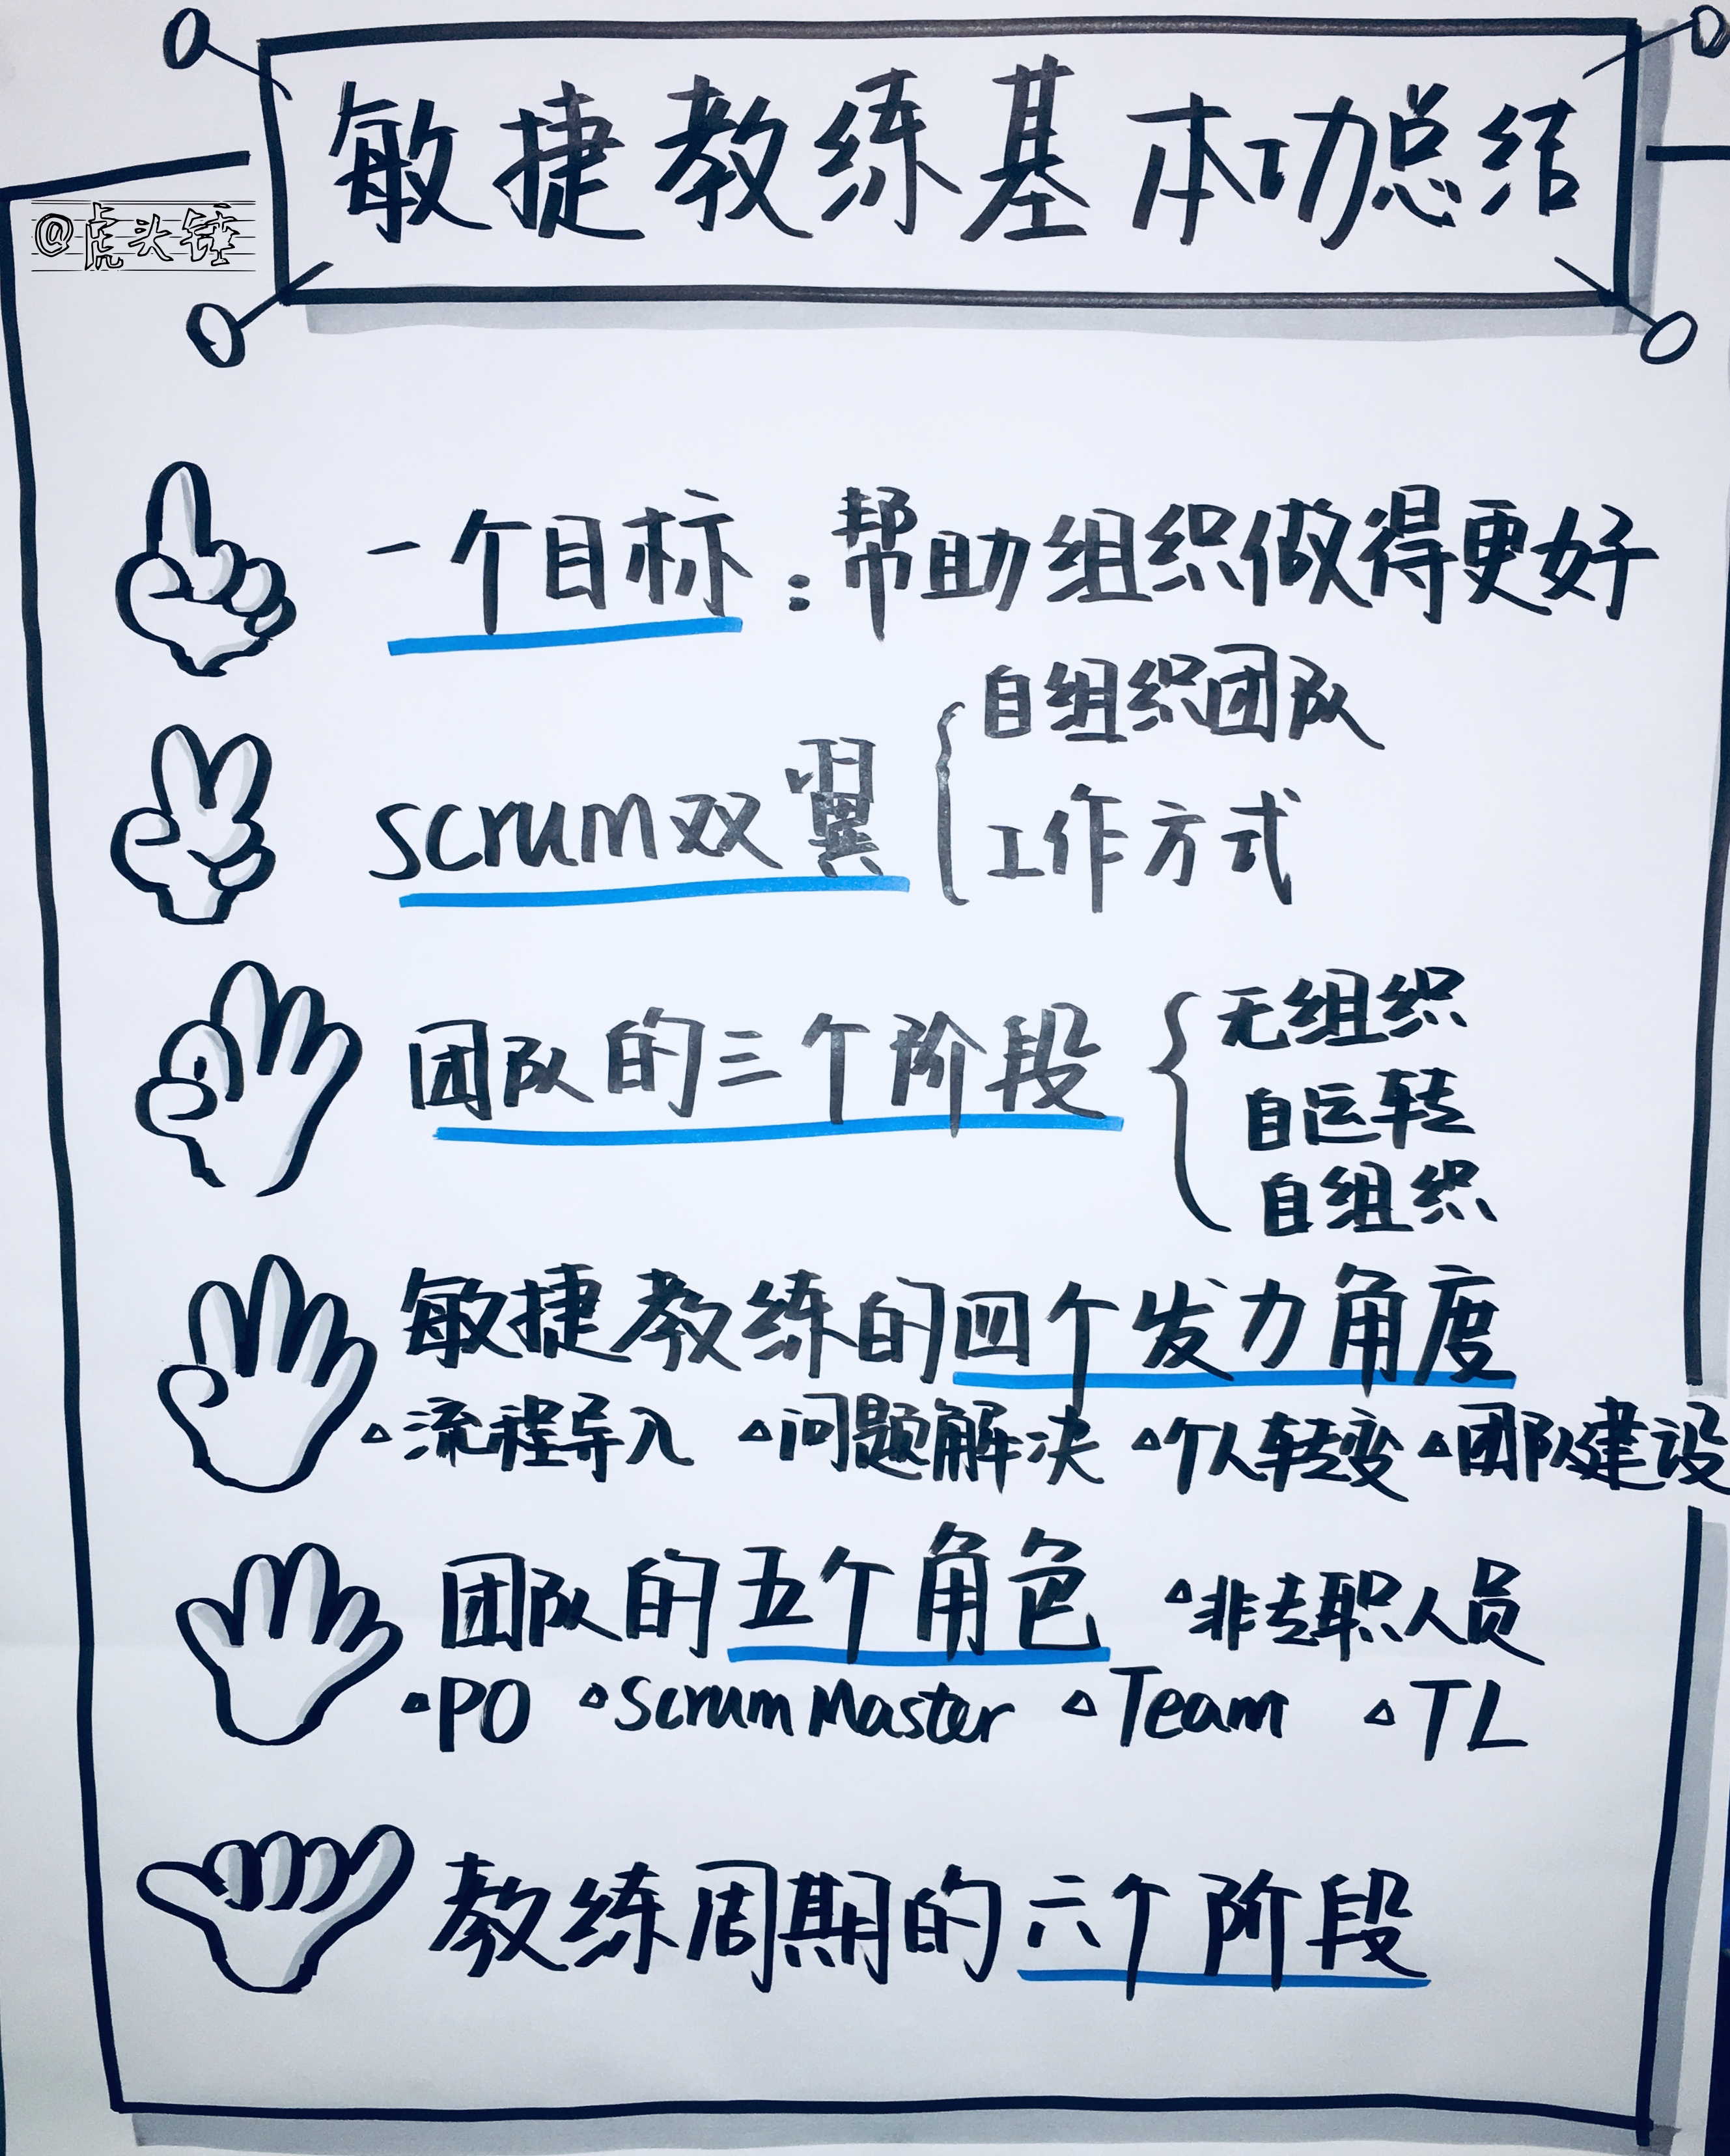 敏捷教练基本功总结
@虎头锤
一个目标：帮助组织做得更好
scrum双翼
自组织团队
工作方式
团队的三个阶段
无组织
自运转
自组织
敏捷教练的四个发力角度
△流程导入 △问题解决 △个人转变 △团队建设
团队的五个角色 △非专职人员
△PO △Scrum Master △Team △TL
教练周期的六个阶段